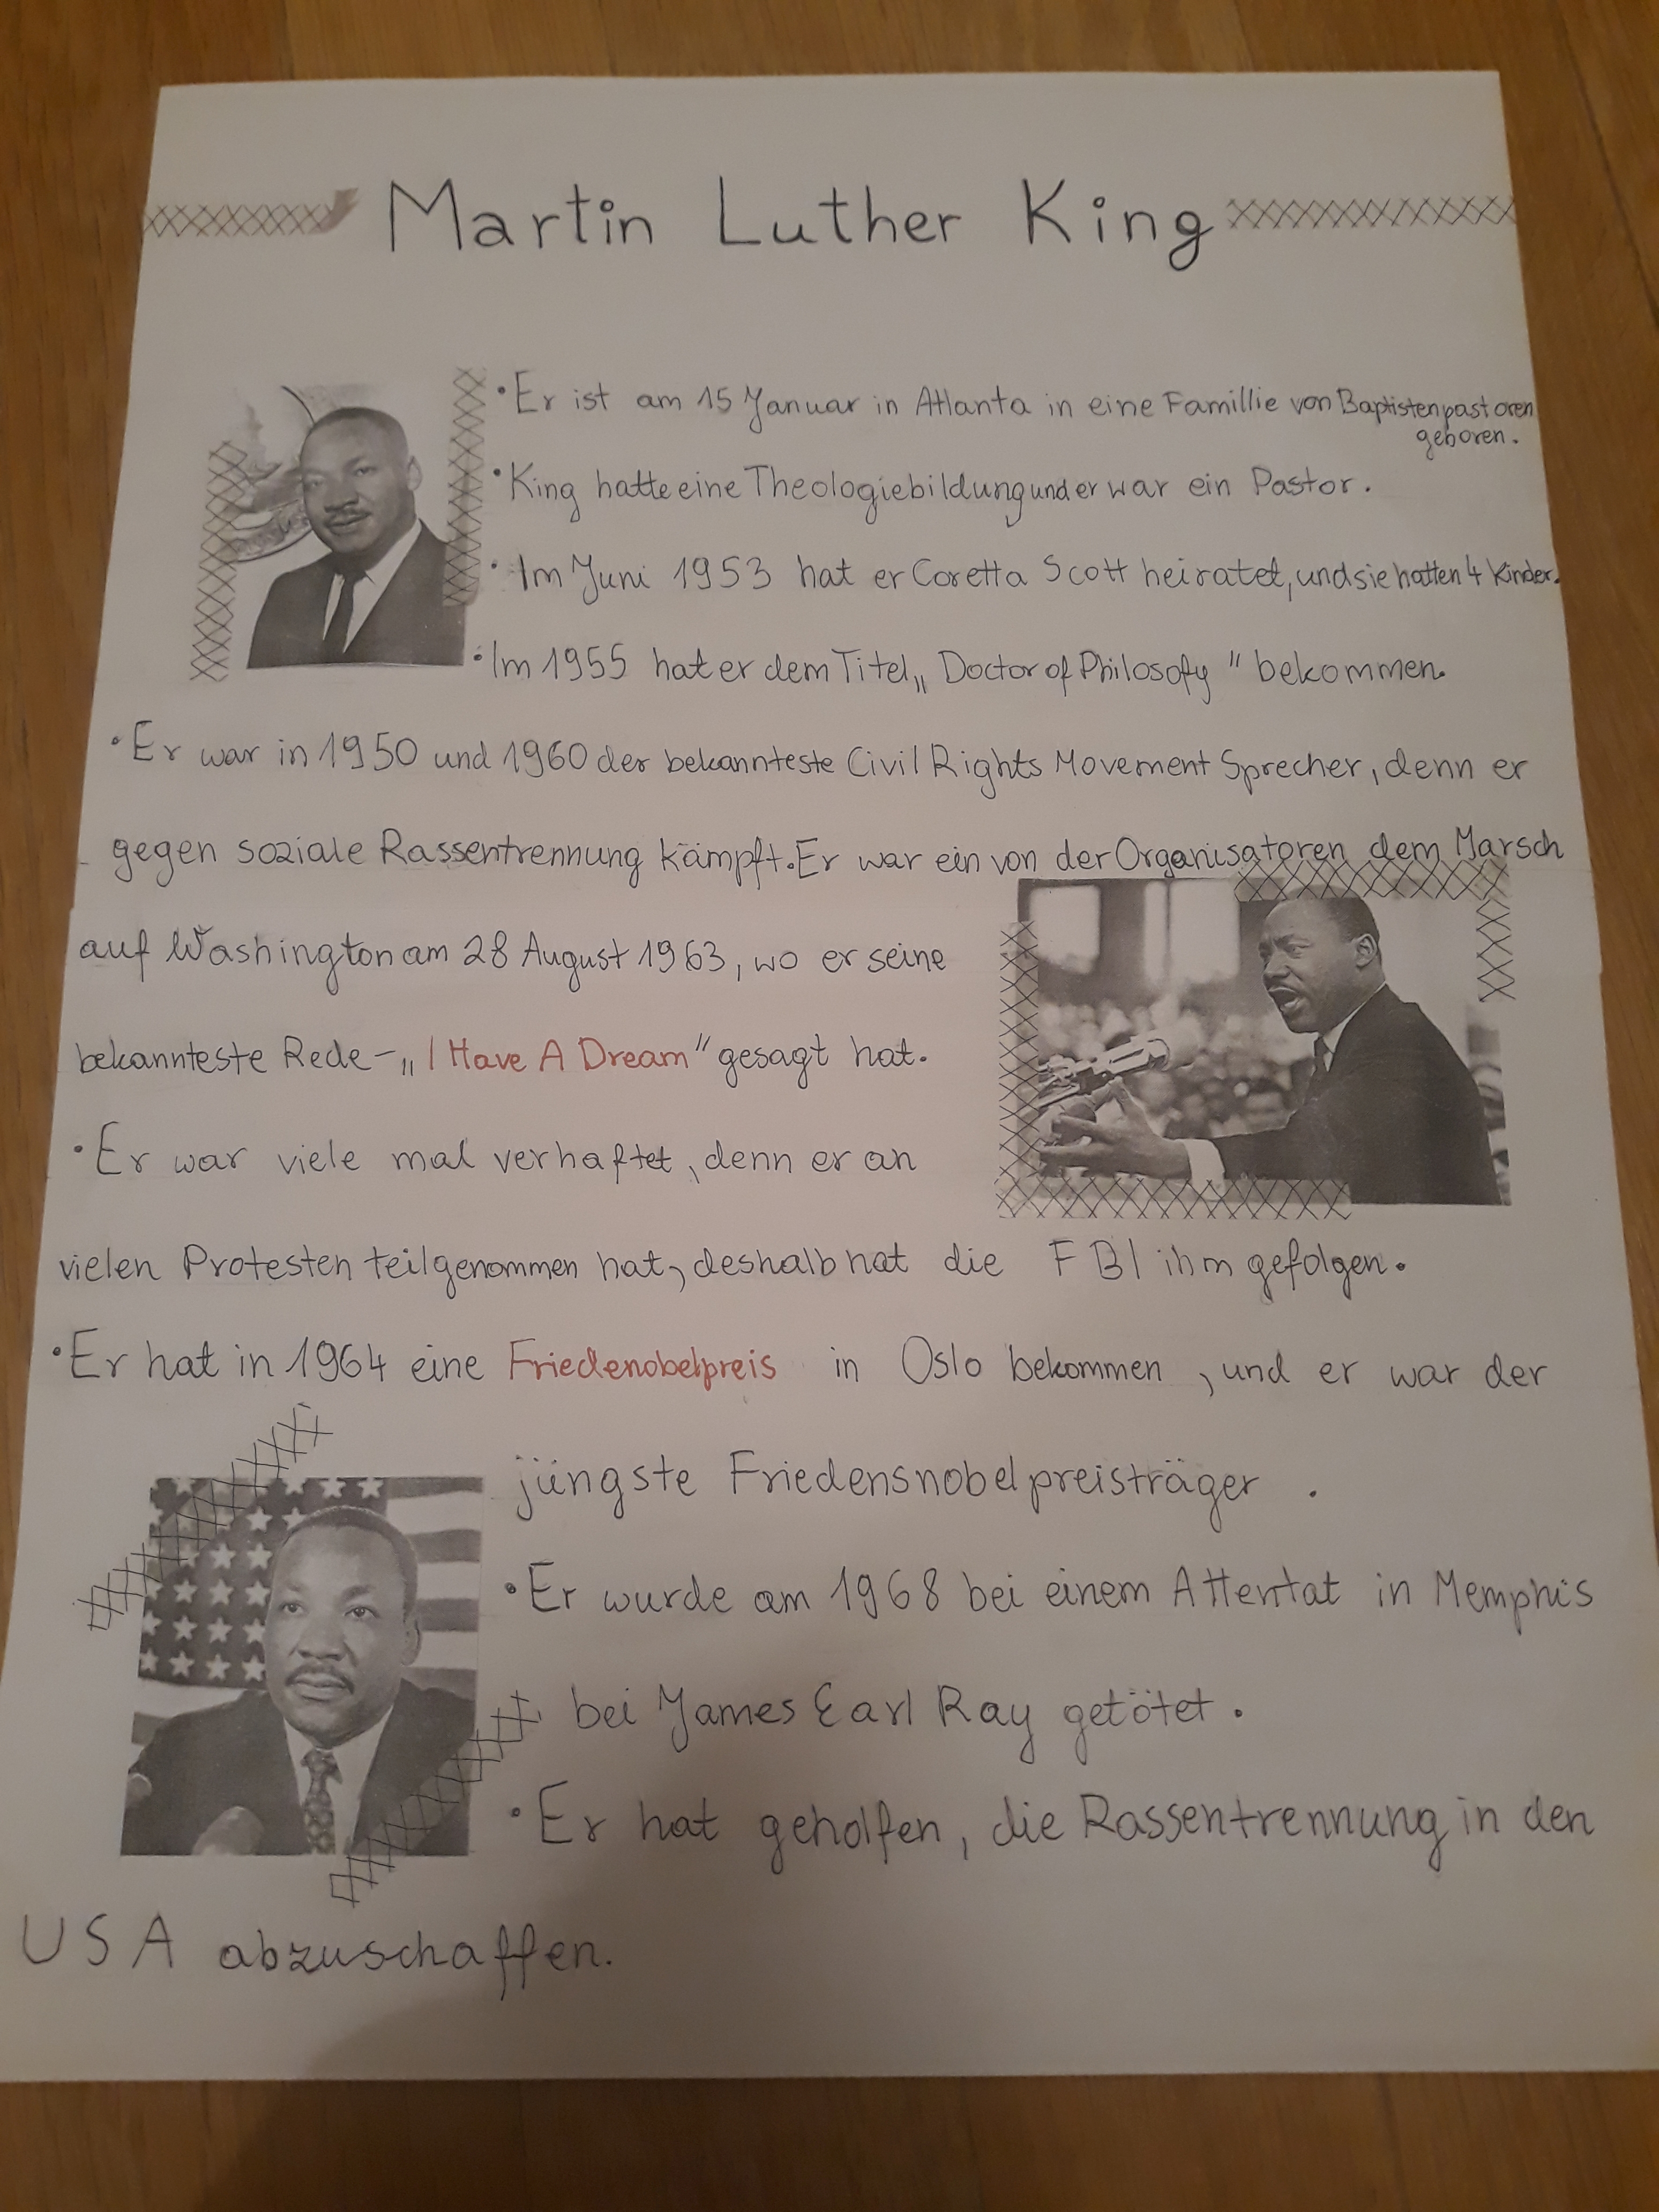 Martin Luther King
• Er ist am 15 Januar in Atlanta in eine Famillie von Baptistenpastoren
geboren.
• King hatte eine Theologiebildung und er war ein Pastor.
• Im Juni 1953 hat er Coretta Scott heiratet, und sie hatten 4 Kinder.
• Im 1955 hat er dem Titel „Doctor of Philosofy" bekommen.
• Er war in 1950 und 1960 der bekannteste Civil Rights Movement Sprecher, denn er
gegen soziale Rassentrennung kämpft. Er war ein von der Organisatoren dem Marsch
auf Washington am 28 August 1963, wo er seine
bekannteste Rede - „I Have A Dream" gesagt hat.
• Er war viele mal verhaftet, denn er an
vielen Protesten teilgenommen hat, deshalb hat die FBI ihm gefolgen.
• Er hat in 1964 eine Friedenobelpreis in Oslo bekommen, und er war der
jüngste Friedensnobelpreisträger.
• Er wurde am 1968 bei einem Attentat in Memphis
bei James Earl Ray getötet.
• Er hat geholfen, die Rassentrennung in den
USA abzuschaffen.